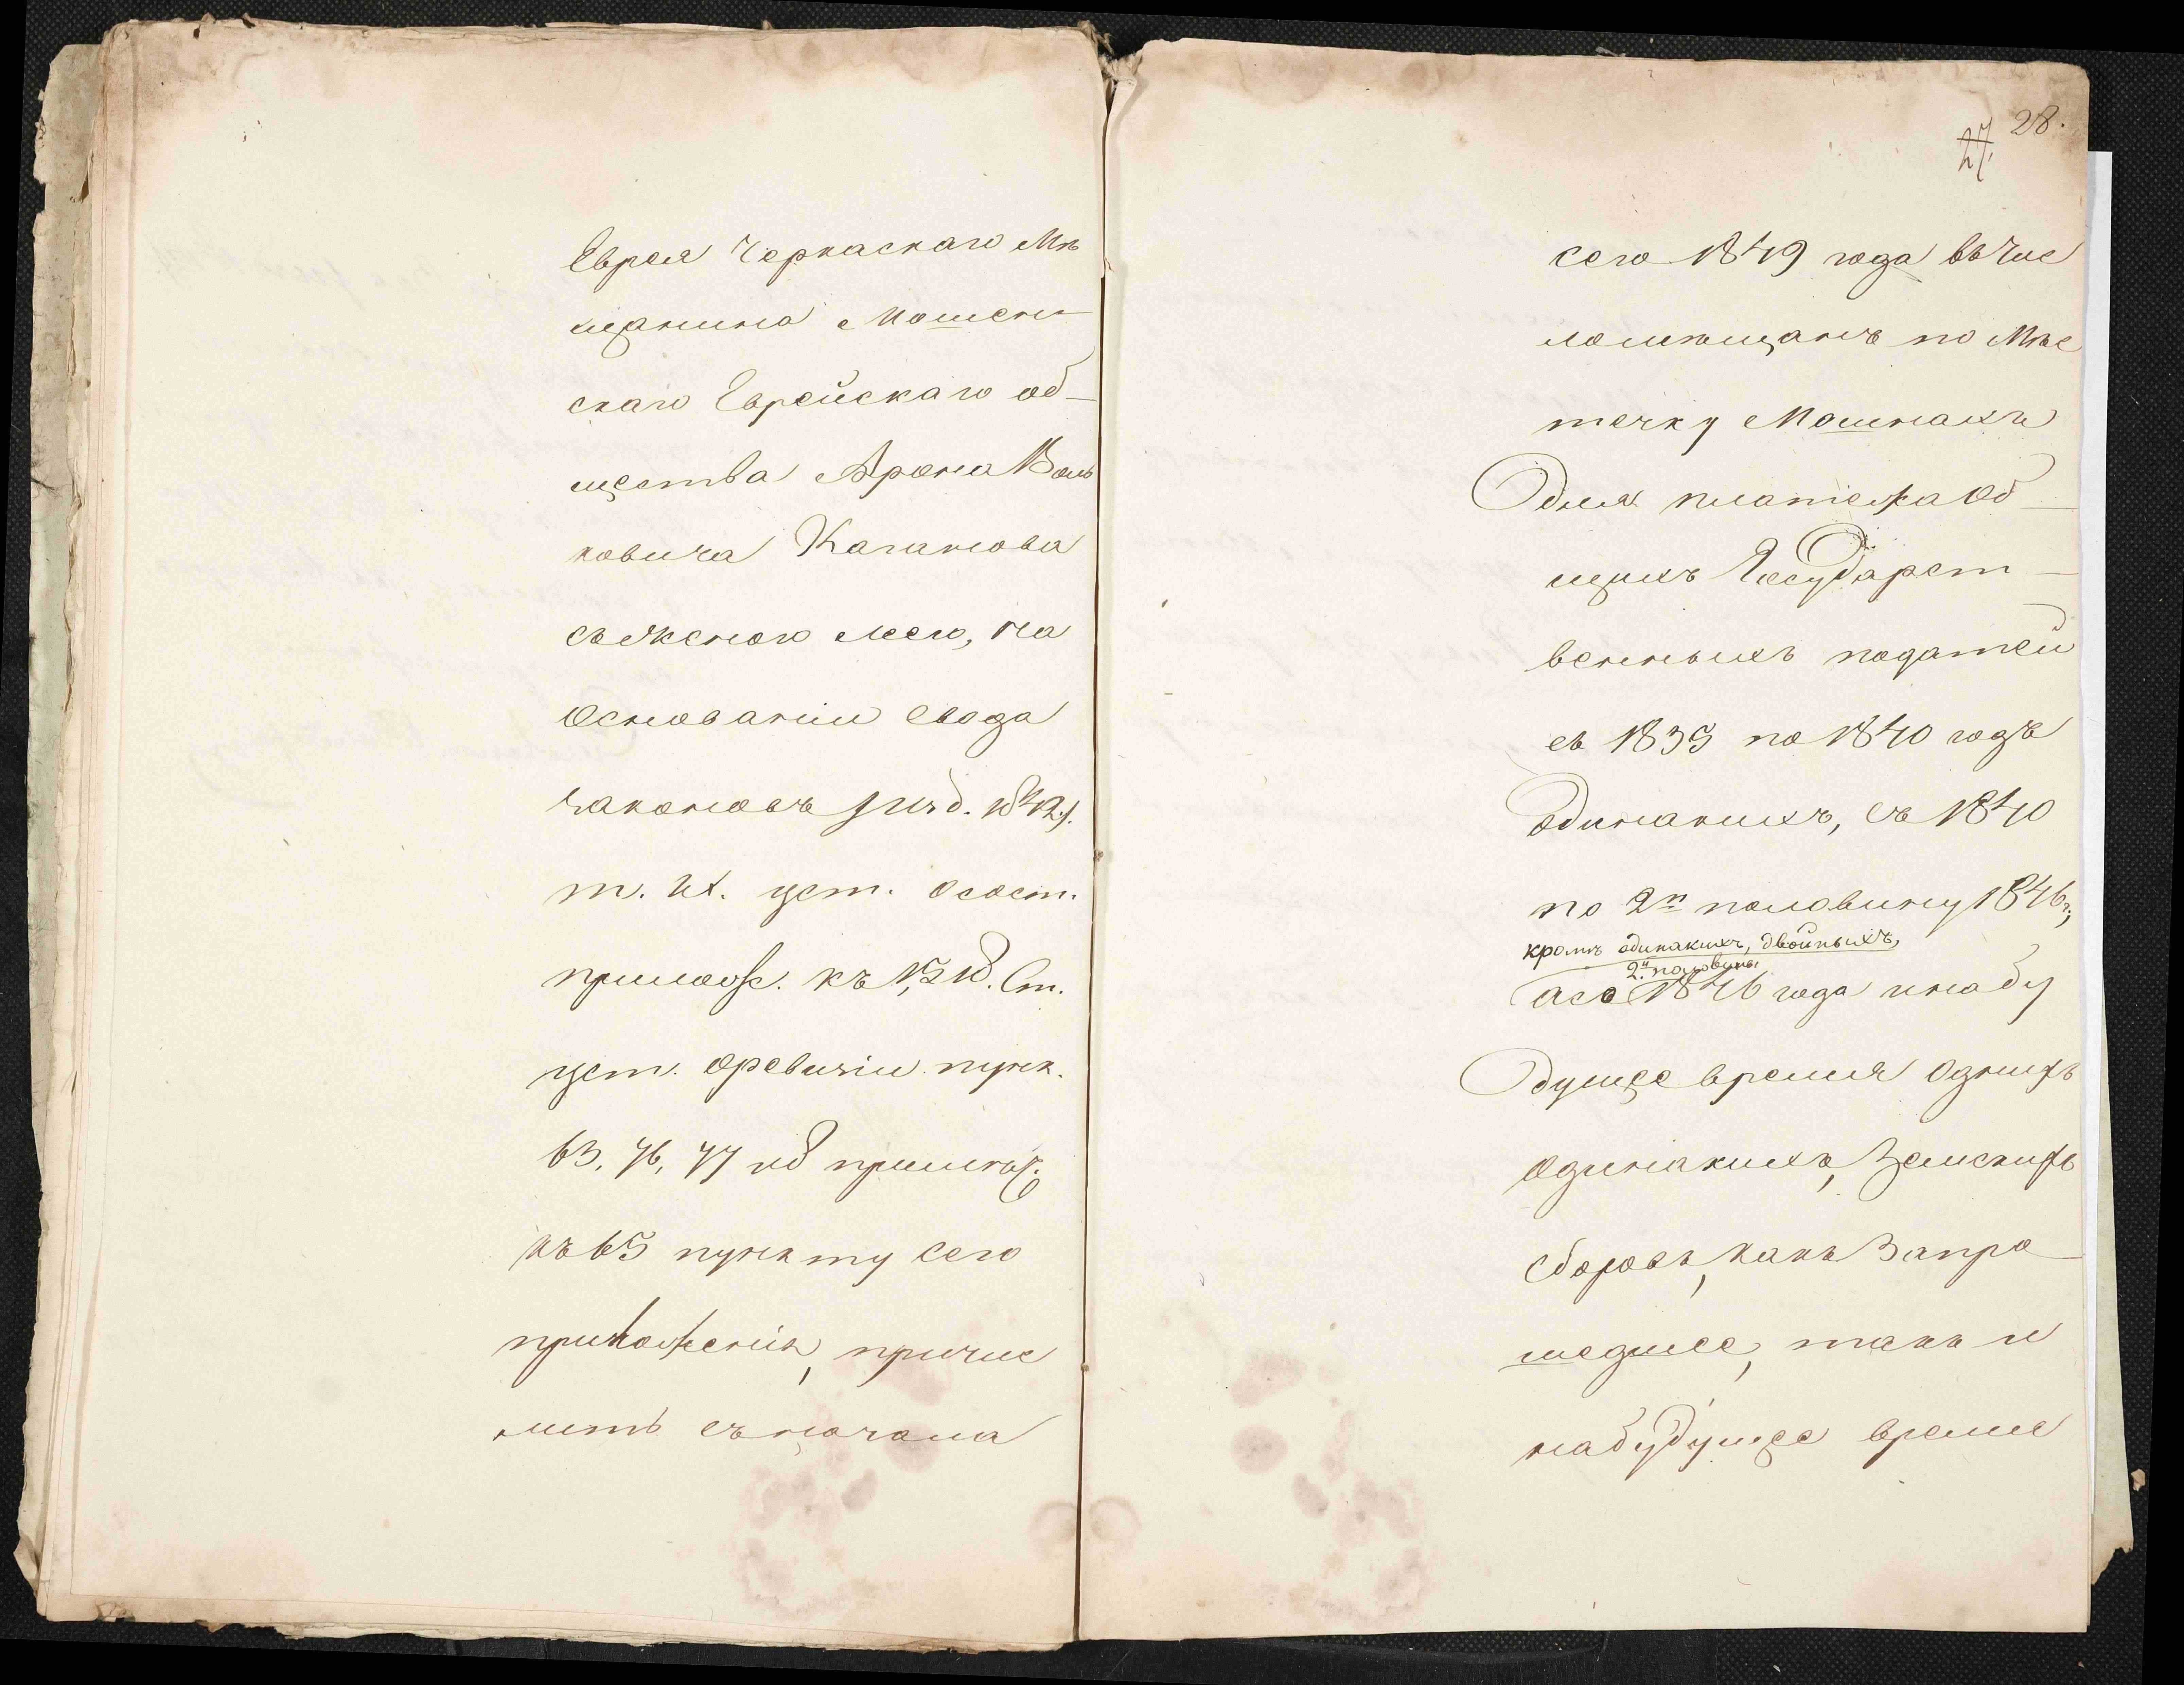 Еврея Черкаскаго Мѣ
щанина Мошен-
скаго Еврейскаго об-
щества Арона Воль
ковича Каганова
съ женою Лею, на
основаніи свода
законовъ /изд. 1842/.
т. IX. уст. о сост.
прилож. къ 1,518. Ст.
уст. о ревизіи пунк.
63, 76, 77 и примѣч.
къ 65 пункту сего
приложенія, причис
лить съ начала
28.
27.
сего 1849 года въ чис
ло мѣщанъ по Мѣс
течку Мошнахъ
для платежа об-
щихъ Государст-
венныхъ податей
съ 1835 по 1840 годъ
одинакихъ, съ 1840
по 2ю половину 1846 г.,
кромѣ одинакихъ, двойныхъ,
2й половины
а со 1846 года и на бу
дущее время однихъ
одинакихъ, Земскихъ
сборовъ, какъ за про-
шедшее, такъ и
на будущее время